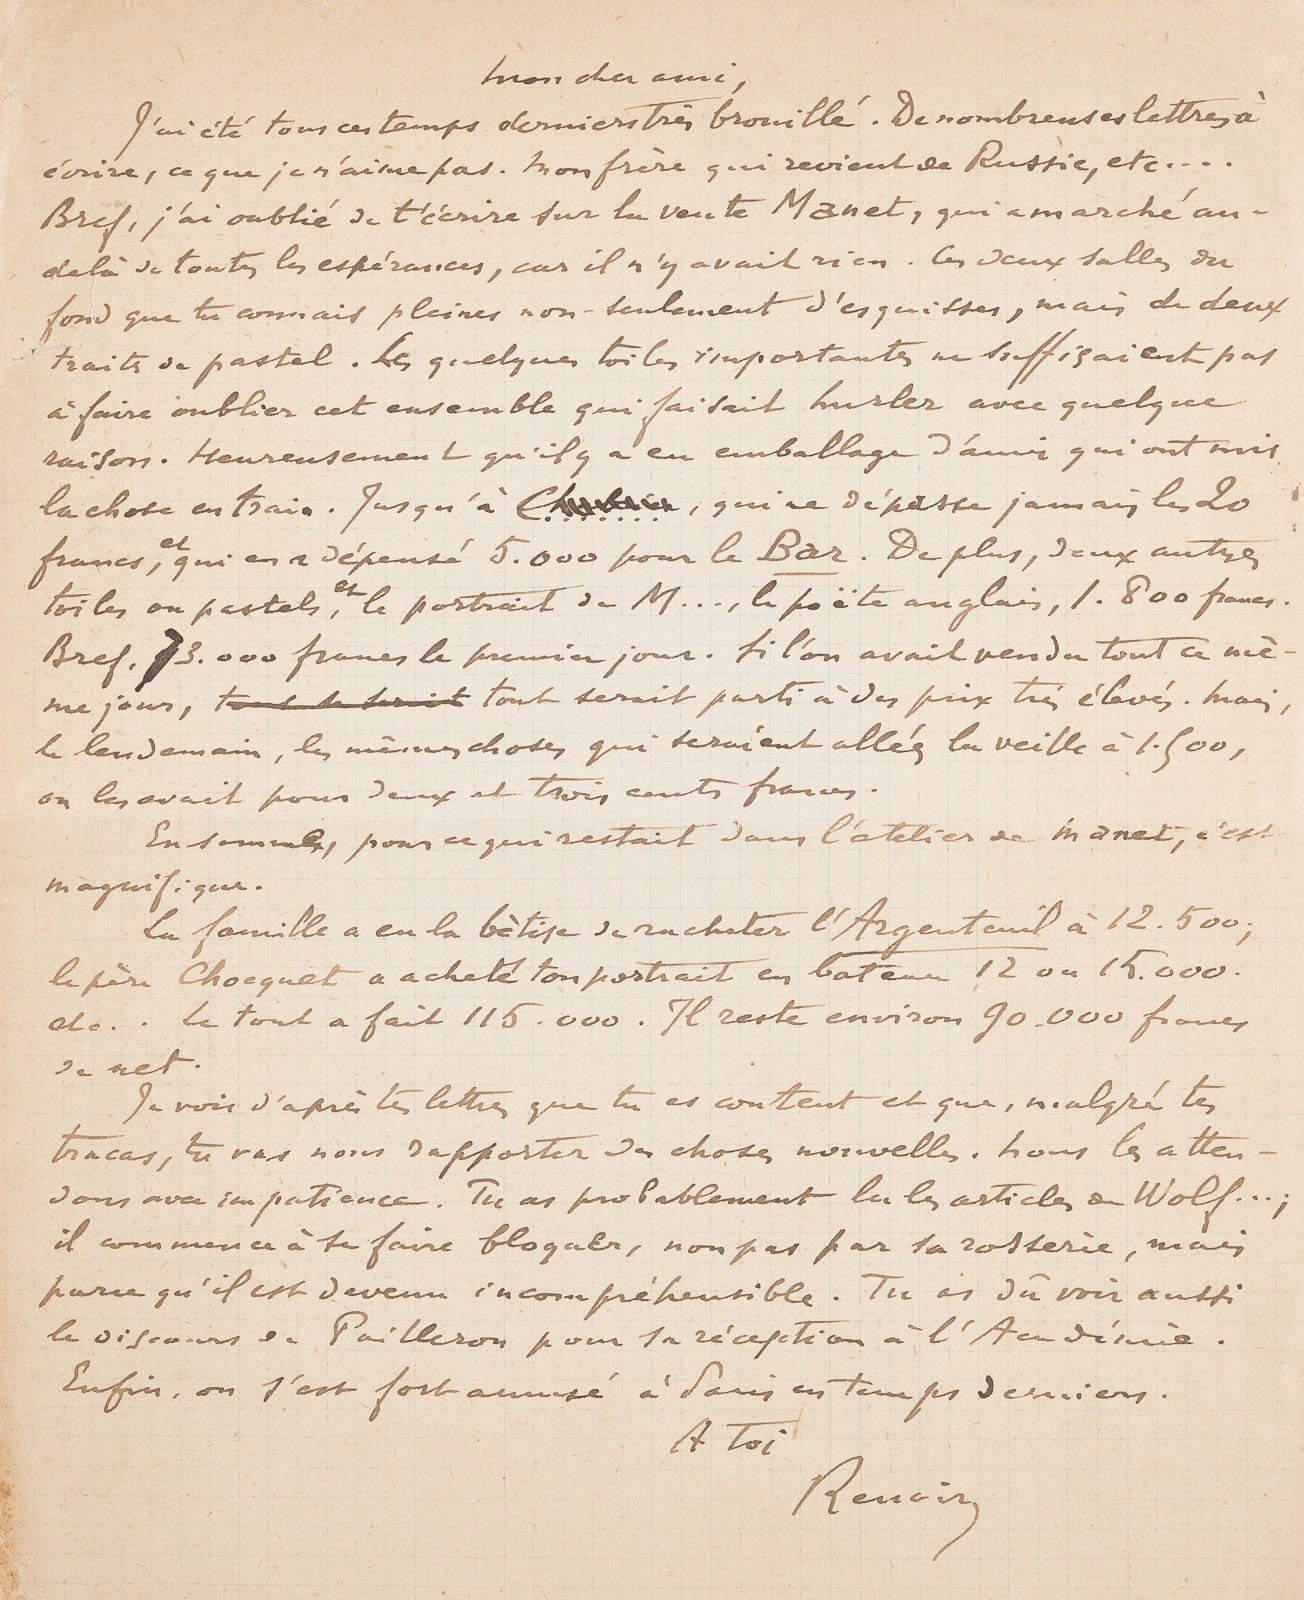 Mon cher ami,
J'ai été tous ces temps derniers très brouillé. De nombreuses lettres à
écrire, ce que je n'aime pas. Mon frère qui revient de Russie, etc....
Bref, j'ai oublié de t'écrire sur la vente Manet, qui a marché au-
delà de toutes les espérances, car il n'y avait rien. Ces deux salles du
fond que tu connais pleines non-seulement d'esquisses, mais de deux
traits de pastel. Les quelques toiles importantes ne suffisaient pas
à faire oublier cet ensemble qui faisait hurler avec quelque
raison. Heureusement qu'il y a eu emballage d'amis qui ont mis
la chose en train. Jusqu'à , qui ne dépasse jamais les 20
francs, et qui en a dépensé 5.000 pour le Bar. De plus, deux autres
toiles ou pastels, et le portrait de M..., le poëte anglais, 1.800 francs.
Bref, 73.000 francs le premier jour. Si l'on avait vendu tout ce mê-
me jour, tout se serait tout serait parti à des prix très élevés. Mais,
le lendemain, les mêmes choses qui seraient allées la veille à 1.500,
on les avait pour deux et trois cents francs.
En somme, pour ce qui restait dans l'atelier de Manet, c'est
magnifique.
La famille a eu la bêtise de racheter l'Argenteuil à 12.500;
le père Chocquet a acheté ton portrait en bateau 12 ou 15.000.
etc.. Le tout a fait 115.000. Il reste environ 90.000 francs
de net.
Je vois d'après tes lettres que tu es content et que, malgré tes
tracas, tu vas nous rapporter des choses nouvelles. Nous les atten-
dons avec impatience. Tu as probablement lu les articles de Wolf...;
il commence à se faire bloquer, non pas par sa rosserie, mais
parce qu'il est devenu incompréhensible. Tu as dû voir aussi
le discours de Pailleron pour sa réception à l'Académie.
Enfin, on s'est fort amusé à Paris ces temps derniers.
A toi
Renoir